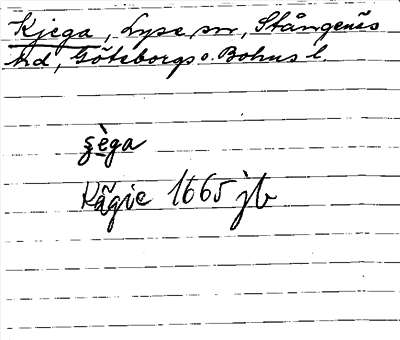 Kjega, Lyse sn, Stångenäs
hd, Göteborgs o. Bohus l.
ʂèga
Kägie 1665 jb